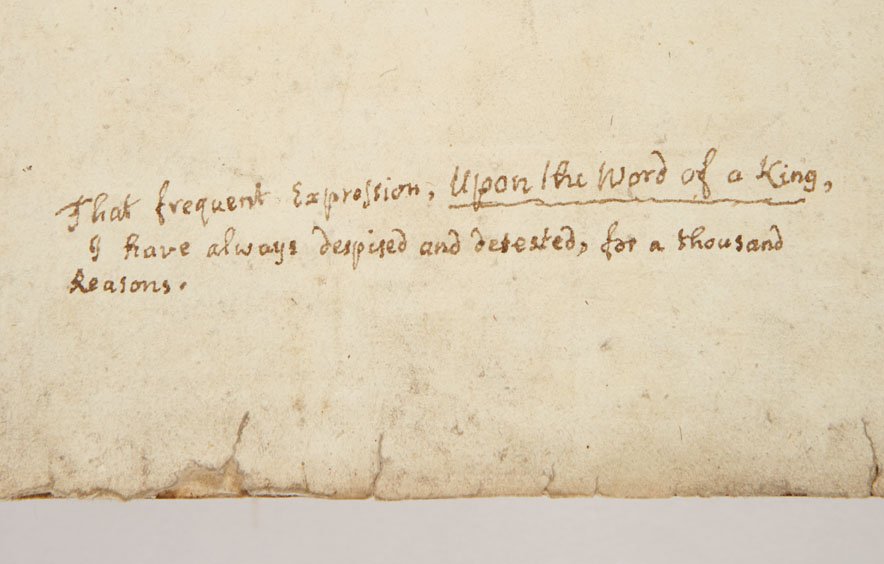 That frequent Expression, Upon the Word of a King,
I have always despised and detested, for a thousand
Reasons.